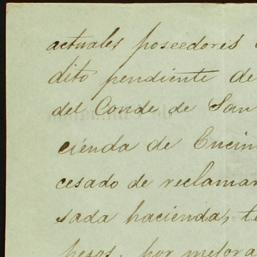 actuales poseedores
dito pendiente de
del Conde de San
cienda de Encin
cesado de reclamar
sada hacienda, t
pesos, por mejora